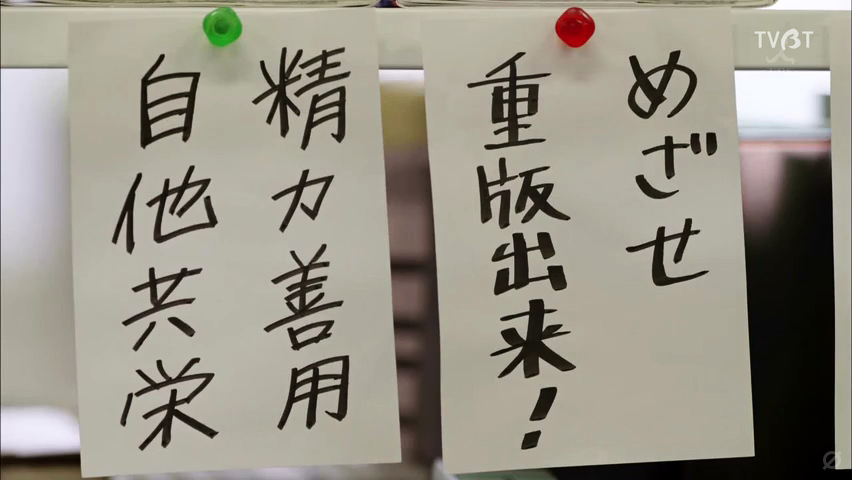 めざせ
重版出来!
精力善用
自他共栄
TVBT